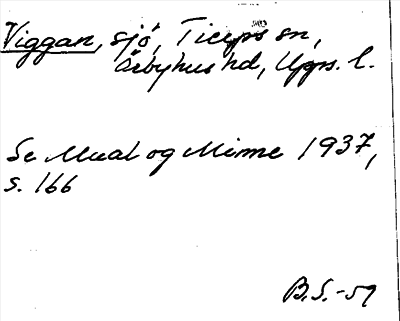 Viggan, sjö, Tierps sn,
Örbyhus hd, Upps. l.
Se Maal og Minne 1937,
s. 166
B.S.-59